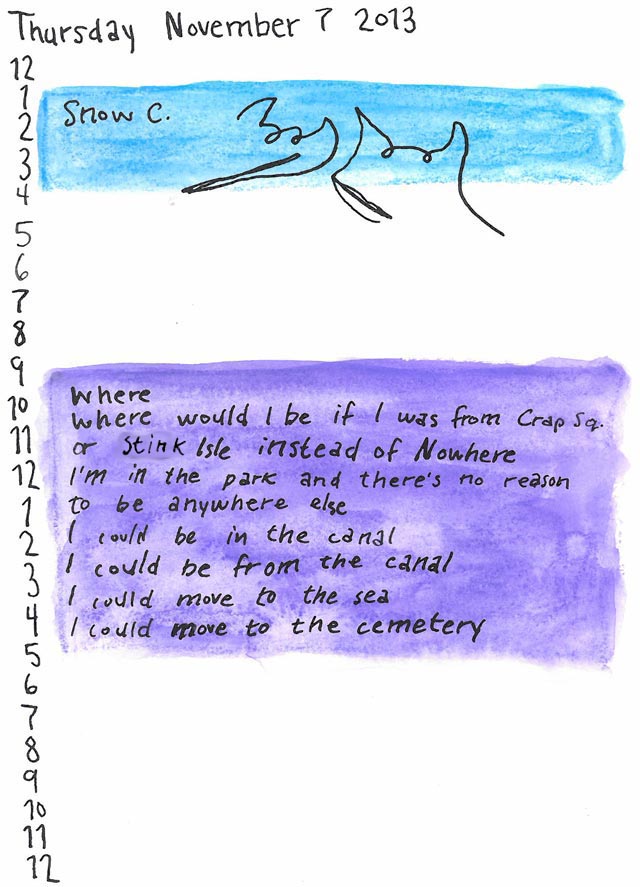 Thursday November 7 2013
12
1
Snow C.
2
3
4
5
6
7
8
9
where
10
where would I be if I was from Crap Sq.
11
or Stink Isle instead of Nowhere
12
I'm in the park and there's no reason
1
to be anywhere else
2
I could be in the canal
3
I could be from the canal
I could move to the sea
4
I could move to the cemetery
5
6
7
8
9
10
11
12